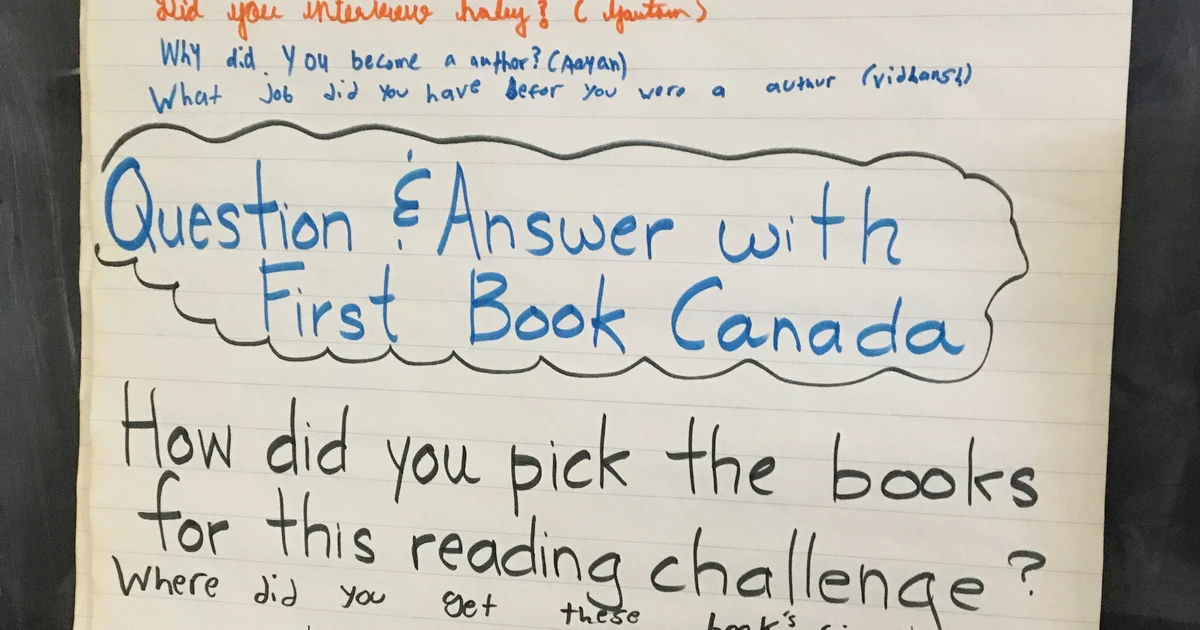 Did you interview haley? (Gautam)
Why did you become a author? (Aayan)
What job did you have befor you were a authur (vidhansh)
Question & Answer with
First Book Canada
How did you pick the books
for this reading challenge?
Where did you get these book's